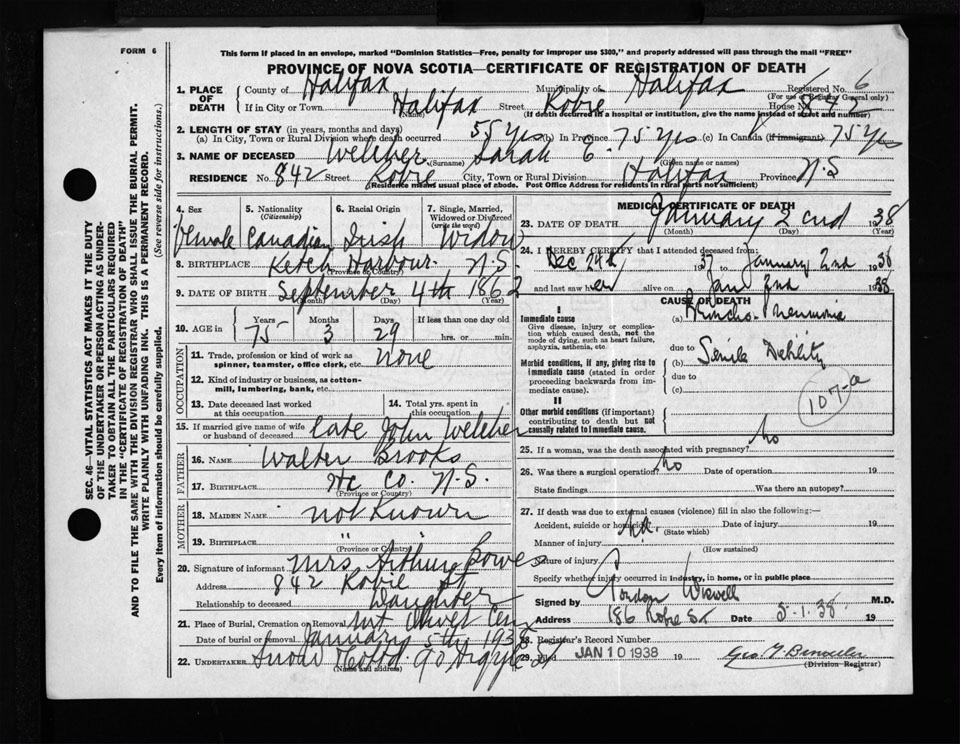 FORM 6
This form if placed in an envelope, marked "Dominion Statistics—Free, penalty for improper use $300," and properly addressed will pass through the mail "FREE"
PROVINCE OF NOVA SCOTIA—CERTIFICATE OF REGISTRATION OF DEATH
1. PLACE OF DEATH County of Halifax Municipality of Halifax Registered No. 6
(For use of Registrar General only)
If in City or Town Halifax Street Robie House No. 842
(Name) (If death occurred in a hospital or institution, give the name instead of street and number)
2. LENGTH OF STAY (in years, months and days)
(a) In City, Town or Rural Division where death occurred 55 yrs (b) In Province 75 yrs (c) In Canada (if immigrant) 75 yrs
3. NAME OF DECEASED Welcher Sarah E.
(Surname) (Given name or names)
RESIDENCE No. 842 Street Robie City, Town or Rural Division Halifax Province N.S
(Residence means usual place of abode. Post Office Address for residents in rural parts not sufficient)
4. Sex 5. Nationality (Citizenship) 6. Racial Origin 7. Single, Married, Widowed or Divorced (write the word)
Female Canadian Irish Widow
8. BIRTHPLACE Ketch Harbour N.S.
(Province or Country)
9. DATE OF BIRTH September 4th 1862
(Month) (Day) (Year)
10. AGE in Years Months Days If less than one day old
75 3 29 hrs. or min.
OCCUPATION
11. Trade, profession or kind of work as spinner, teamster, office clerk, etc. None
12. Kind of industry or business, as cotton-mill, lumbering, bank, etc.
13. Date deceased last worked at this occupation
14. Total yrs. spent in this occupation
15. If married give name of wife or husband of deceased late John Welcher
FATHER
16. NAME Walter Brooks
17. BIRTHPLACE Hx Co. N.S.
(Province or Country)
MOTHER
18. MAIDEN NAME not Known
19. BIRTHPLACE " "
(Province or Country)
20. Signature of informant Mrs Arthur Bowes
Address 842 Robie St
Relationship to deceased Daughter
21. Place of Burial, Cremation or Removal Mt Olivet Cem
Date of burial or removal January 5th 1938
22. UNDERTAKER Snow 90 Argyle St
(Name and address)
MEDICAL CERTIFICATE OF DEATH
23. DATE OF DEATH January 2nd 1938
(Month) (Day) (Year)
24. I HEREBY CERTIFY that I attended deceased from:
Dec 24th 1937 to January 2nd 1938
and last saw her alive on Jan 2nd 1938
CAUSE OF DEATH
I
Immediate cause
Give disease, injury or complication which caused death, not the mode of dying, such as heart failure, asphyxia, asthenia, etc.
(a) Broncho-Pneumonia
due to
Morbid conditions, if any, giving rise to immediate cause (stated in order proceeding backwards from immediate cause).
(b) Senile Debility
due to
(c)
107-a
II
Other morbid conditions (if important) contributing to death but not causally related to immediate cause.
25. If a woman, was the death associated with pregnancy? No
26. Was there a surgical operation? No Date of operation 19
State findings Was there an autopsy?
27. If death was due to external causes (violence) fill in also the following:—
Accident, suicide or homicide? Date of injury 19
(State which)
Manner of injury
(How sustained)
Nature of injury
Specify whether injury occurred in industry, in home, or in public place
Signed by Gordon Wiswell M.D.
Address 186 Robie St Date 5-1-38 19
28. Registrar's Record Number
29. Filed JAN 10 1938 19
(Division Registrar)
SEC. 46—VITAL STATISTICS ACT MAKES IT THE DUTY
OF THE UNDERTAKER OR PERSON ACTING AS UNDER-
TAKER TO OBTAIN ALL THE PARTICULARS REQUIRED
IN THE "CERTIFICATE OF REGISTRATION OF DEATH"
AND TO FILE THE SAME WITH THE DIVISION REGISTRAR WHO SHALL ISSUE THE BURIAL PERMIT.
WRITE PLAINLY WITH UNFADING INK. THIS IS A PERMANENT RECORD.
Every item of information should be carefully supplied. (See reverse side for instructions.)